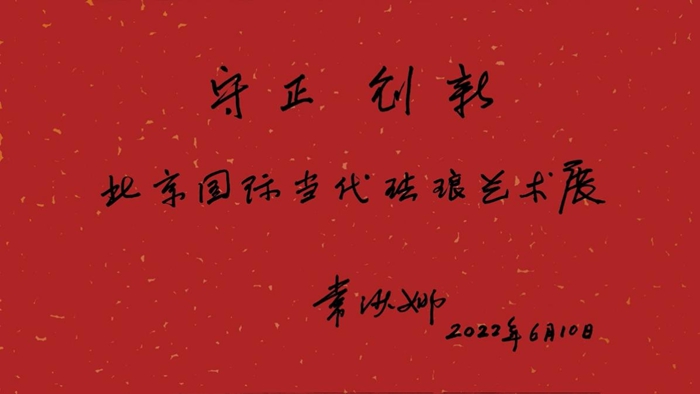 守正 创新
北京国际当代珐琅艺术展
常沙娜
2022年6月10日